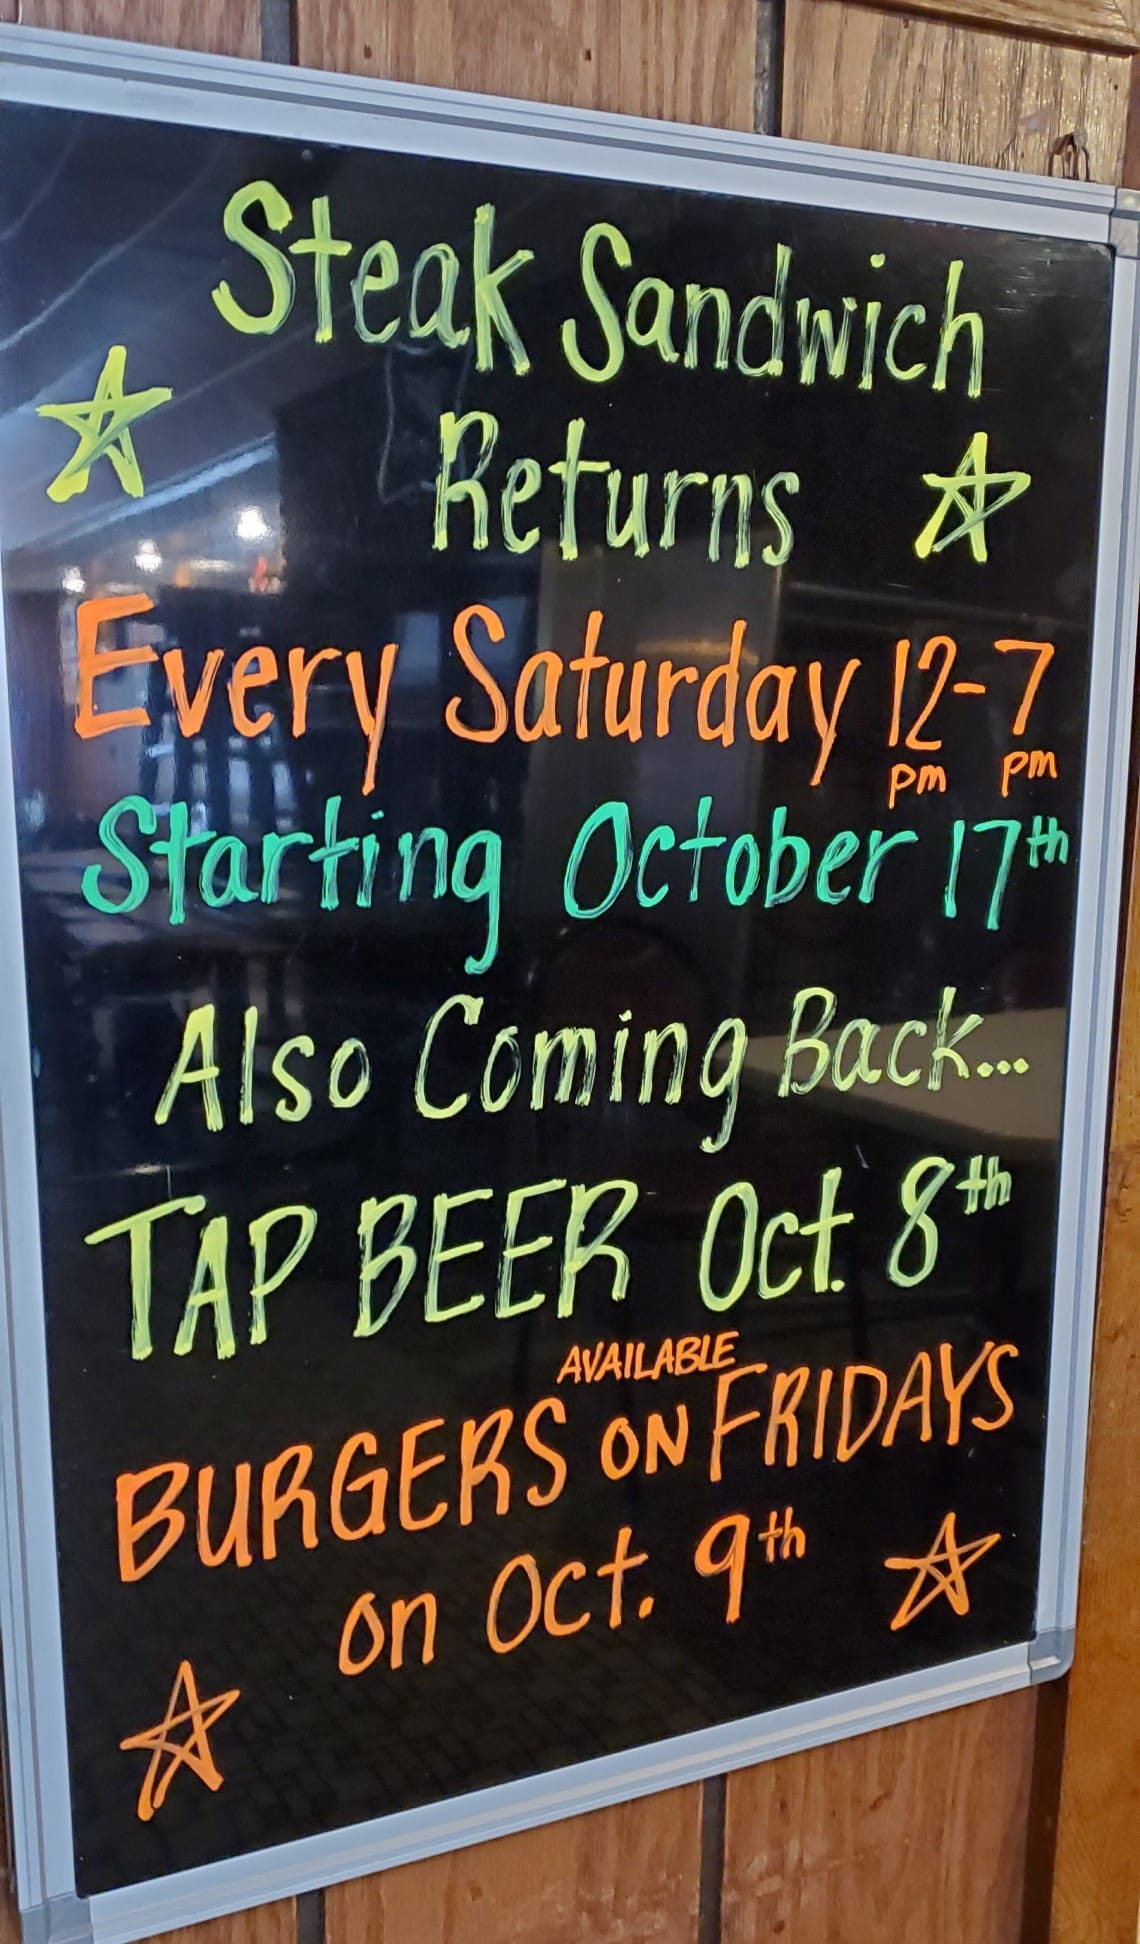 Steak Sandwich
Returns
Every Saturday 12-7
pm pm
Starting October 17th
Also Coming Back...
TAP BEER Oct. 8th
AVAILABLE
BURGERS ON FRIDAYS
on Oct. 9th